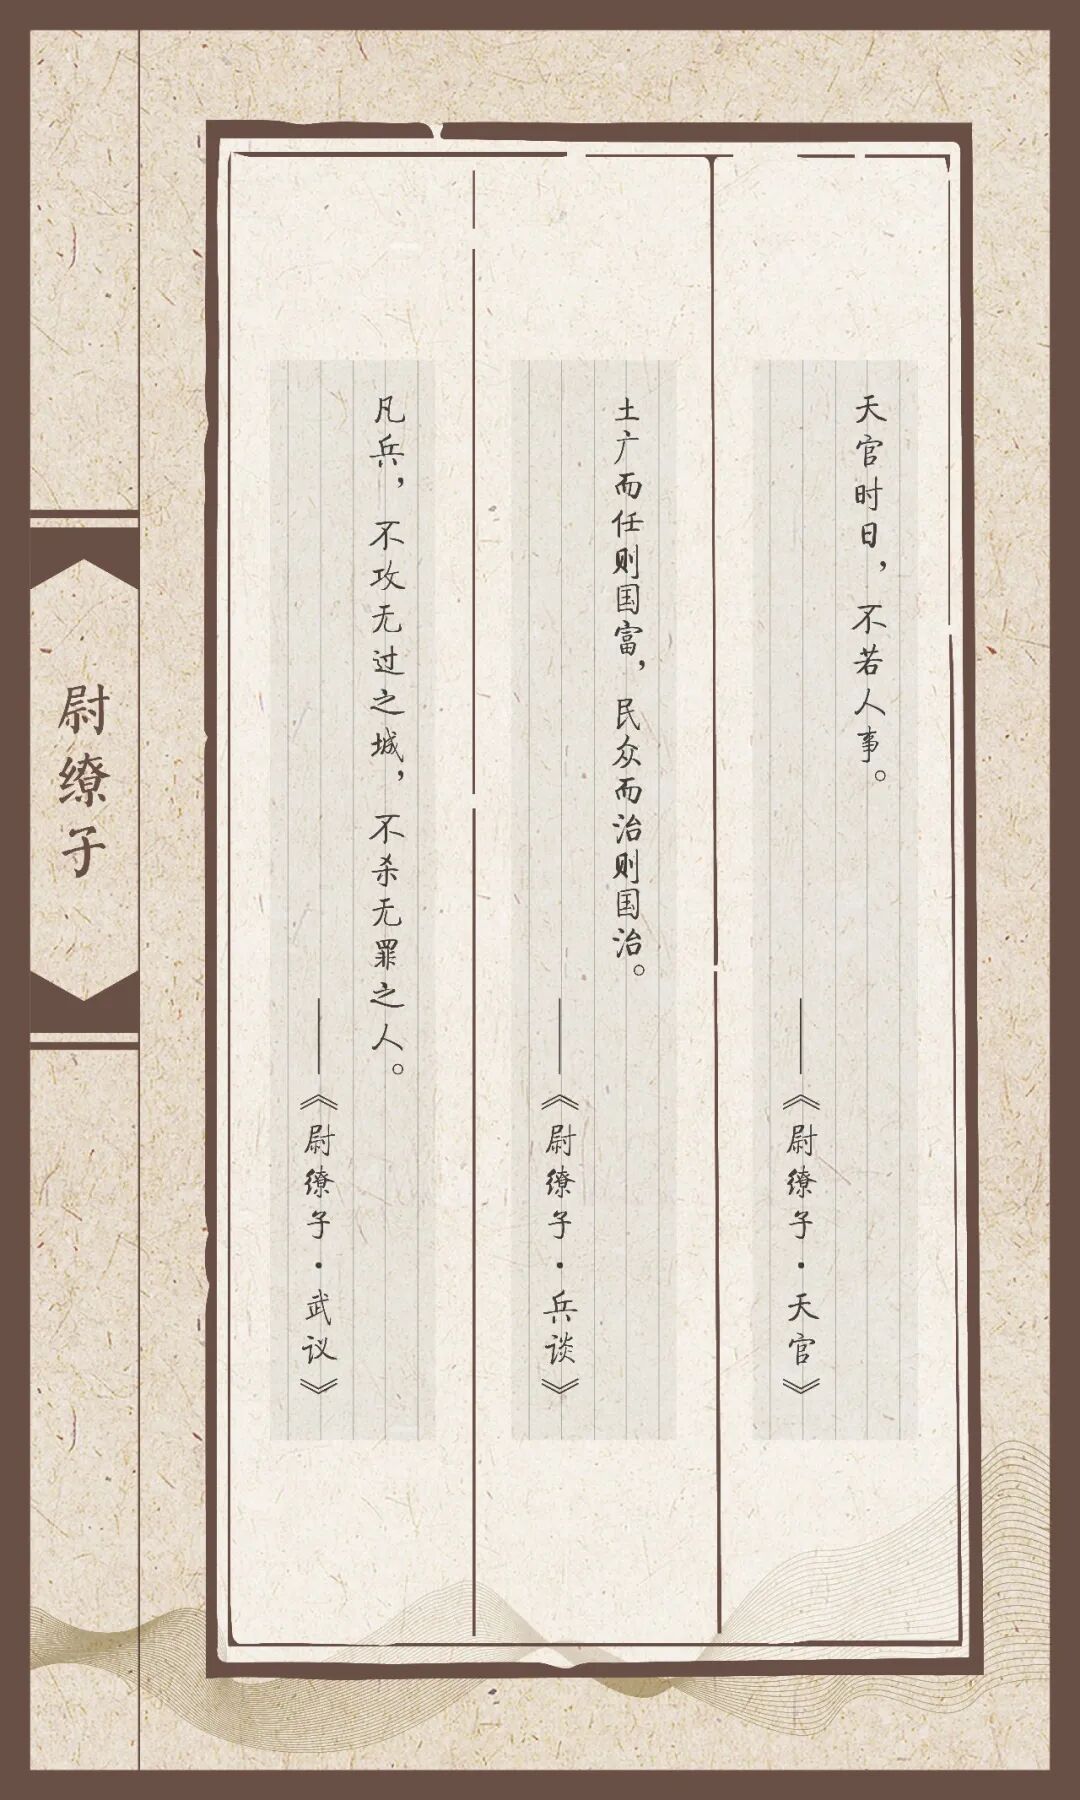 天官时日，不若人事。
——《尉缭子·天官》
土广而任则国富，民众而治则国治。
——《尉缭子·兵谈》
凡兵，不攻无过之城，不杀无罪之人。
——《尉缭子·武议》
尉缭子